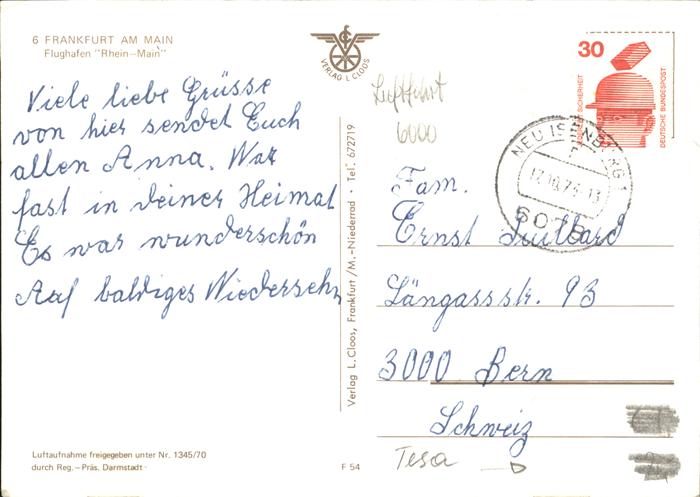 6 FRANKFURT AM MAIN
Flughafen "Rhein-Main"
VERLAG L. CLOOS
Luftfahrt
6000
30
SICHERHEIT
DEUTSCHE BUNDESPOST
NEU ISENBURG 1
6078
Viele liebe Grüsse
von hier sendet Euch
allen Anna. War
fast in deiner Heimat
Es war wunderschön
Auf baldiges Wiedersehn
Verlag L. Cloos, Frankfurt/M.-Niederrod • Tel. 672719
Fam.
Ernst
Längassstr. 93
3000 Bern
Schweiz
Luftaufnahme freigegeben unter Nr. 1345/70
durch Reg.-Präs. Darmstadt
F 54
Tesa